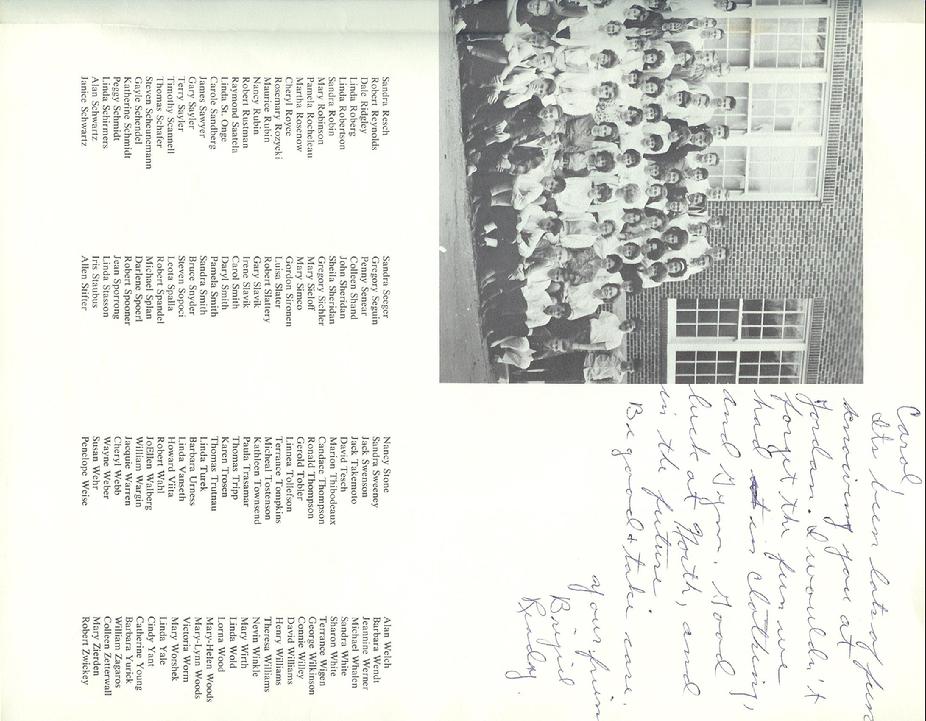 Carol,
Its been lots of fun
knowing you at
Ford. I wouldn't
forget the fun we
had at in clothing,
and Gym. Good
luck at North, and
in the future
Be good & take care.
your frien
Sandra Resch
Robert Reynolds
Dale Ridgley
Linda Roberg
Linda Robertson
Sandra Robin
Mary Robinson
Pamela Rocheleau
Martha Rosenow
Cheryl Royce
Rosemary Rozycki
Maurice Rubin
Nancy Rubin
Robert Rustman
Raymond Saatela
Linda St. Onge
Carole Sandberg
James Sawyer
Gary Sayler
Terry Sayler
Timothy Scannell
Thomas Schafer
Steven Scheunemann
Gayle Schendel
Katherine Schmidt
Peggy Schmidt
Linda Schirmers
Alan Schwartz
Janice Schwartz
Sandra Seeger
Gregory Seguin
Penny Senear
Colleen Shand
John Sheridan
Sheila Sheridan
Gregory Sichler
Mary Sieloff
Mary Simco
Gordon Sironen
Luisa Slater
Robert Slattery
Gary Slavik
Irene Slavik
Carol Smith
Daryl Smith
Pamela Smith
Sandra Smith
Bruce Snyder
Steven Sopoci
Leota Spalla
Robert Spandel
Michael Splan
Darlene Spoerl
Robert Spooner
Jean Sporrong
Linda Stasson
Iris Staubus
Allen Stifter
Nancy Stone
Sandra Sweeney
Jack Swenson
Jack Takemoto
David Tesch
Marion Thibodeaux
Candace Thompson
Ronald Thompson
Gerold Tobler
Linnea Tollefson
Terrance Tompkins
Micheal Tostenson
Kathleen Townsend
Paula Trasamar
Thomas Tripp
Karen Trosen
Thomas Trutnau
Linda Turek
Barbara Urness
Linda Vanseth
Howard Viita
Robert Wahl
JoEllen Walberg
William Wargin
Jacquie Warren
Cheryl Webb
Wayne Weber
Susan Wehr
Penelope Weise
Alan Welch
Barbara Wendt
Jeanne Werner
Michael Whalen
Sandra White
Sharon White
Terrance Wigen
George Wilkinson
Connie Willey
David Williams
Henry Williams
Theresa Williams
Nevin Winkle
Mary Wirth
Linda Wold
Lorna Wood
Mary-Helen Woods
Mary-Lynn Woods
Victoria Worm
Mary Worshek
Linda Yale
Cindy Yant
Catherine Young
Barbara Yurick
William Zagaros
Colleen Zetterwall
Mary Zierden
Robert Zwickey